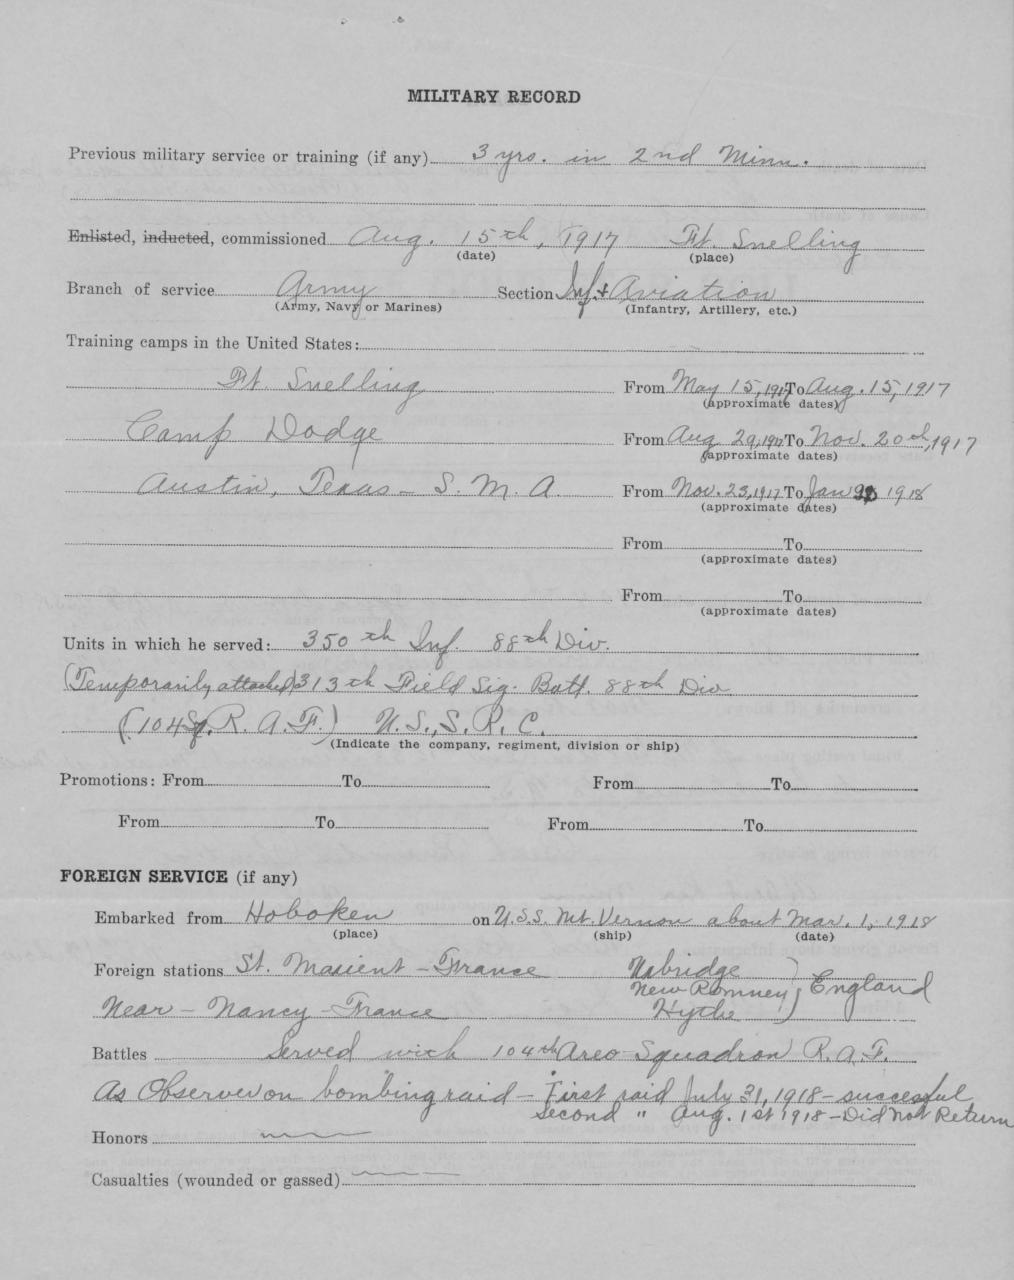 MILITARY RECORD
Previous military service or training (if any) 3 yrs. in 2nd Minn.
Enlisted, inducted, commissioned Aug. 15th, 1917 Ft. Snelling
(date) (place)
Branch of service Army Section Inf. & Aviation
(Army, Navy or Marines) (Infantry, Artillery, etc.)
Training camps in the United States:
Ft. Snelling From May 15, 1917 To Aug. 15, 1917
(approximate dates)
Camp Dodge From Aug 29, 1917 To Nov. 20th, 1917
(approximate dates)
Austin, Texas - S. M. A. From Nov. 23, 1917 To Jan 1918
(approximate dates)
From To
(approximate dates)
From To
(approximate dates)
Units in which he served: 350th Inf. 88th Div.
(Temporarily attached) 313th Field Sig. Batt. 88th Div
(104 Sq. R. A. F.) U. S. S. R. C.
(Indicate the company, regiment, division or ship)
Promotions: From To From To
From To From To
FOREIGN SERVICE (if any)
Embarked from Hoboken on U.S.S. Mt. Vernon about Mar. 1, 1918
(place) (ship) (date)
Foreign stations St. Maxient - France Uxbridge
New Romney } England
Near - Nancy - France Hythe
Battles Served with 104th Areo Squadron R. A. F.
As Observer on bombing raid - First raid July 31, 1918 - successful
Second " Aug. 1st 1918 - Did Not Return
Honors
Casualties (wounded or gassed)